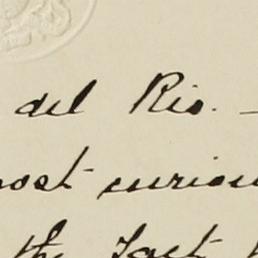 del Rio. —
most curiou
the fact